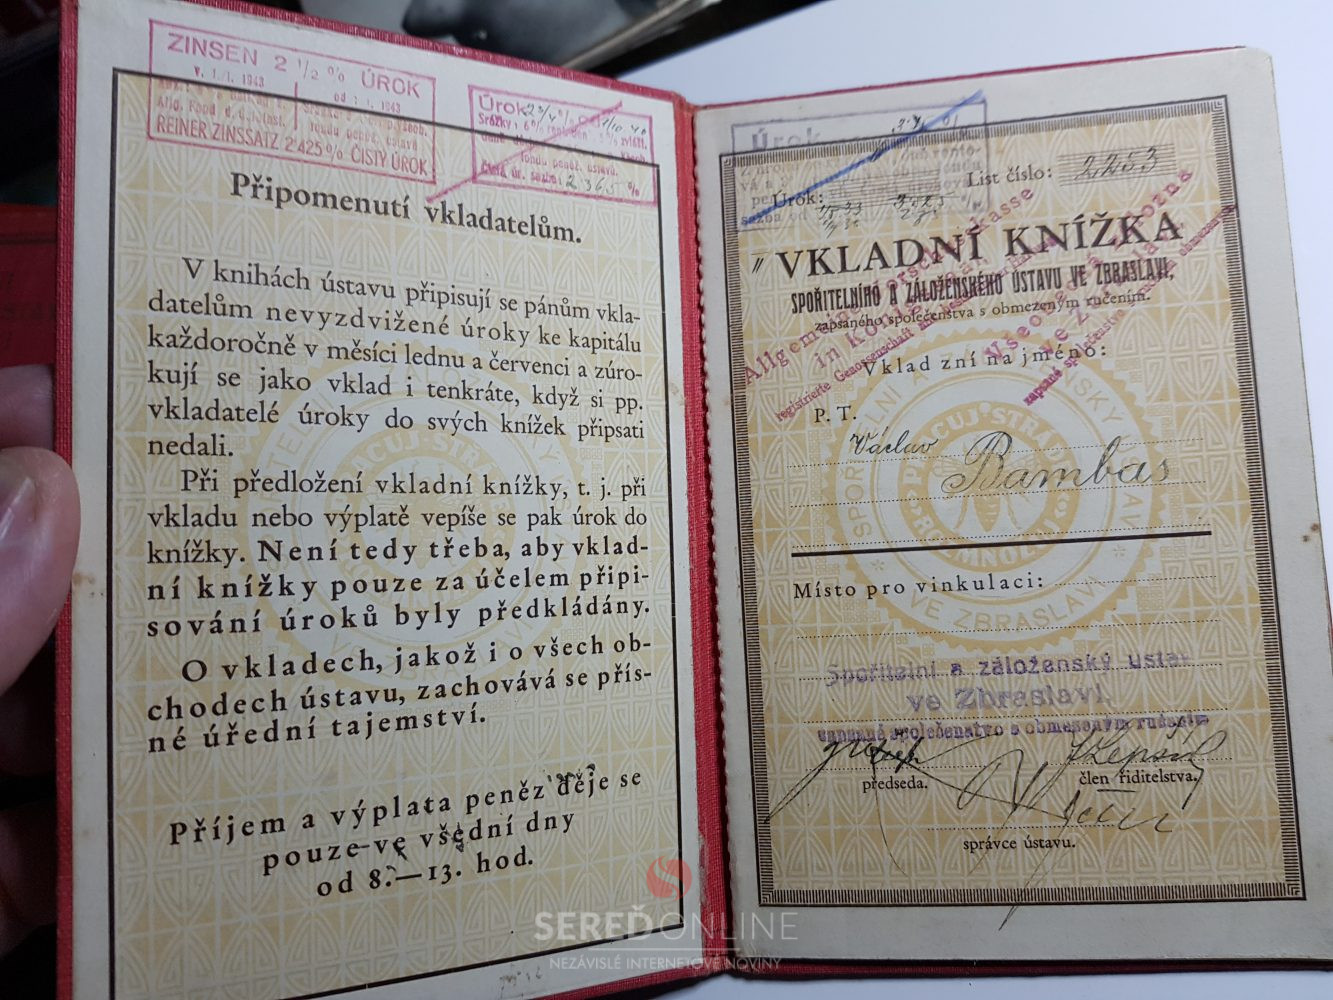 ZINSEN 2 1/2 % ÚROK
v. 1. I. 1943
od 1. I. 1943
REINER ZINSSATZ 2'425% ČISTÝ ÚROK
Úrok 2 3/4 % od 1/10. 40
fondu peněz. ústavů.
2 365 %
Připomenutí vkladatelům.
V knihách ústavu připisují se pánům vkla-
datelům nevyzdvižené úroky ke kapitálu
každoročně v měsíci lednu a červenci a zúro-
kují se jako vklad i tenkráte, když si pp.
vkladatelé úroky do svých knížek připsati
nedali.
Při předložení vkladní knížky, t. j. při
vkladu nebo výplatě vepíše se pak úrok do
knížky. Není tedy třeba, aby vklad-
ní knížky pouze za účelem připi-
sování úroků byly předkládány.
O vkladech, jakož i o všech ob-
chodech ústavu, zachovává se přís-
né úřední tajemství.
Příjem a výplata peněz děje se
pouze ve všední dny
od 8.—13. hod.
Úrok
Úrok:
List číslo: 2253
"VKLADNÍ KNÍŽKA
SPOŘITELNÍHO A ZÁLOŽENSKÉHO ÚSTAVU VE ZBRASLAVI,
zapsaného společenstva s obmezeným ručením.
Allgemeine
in Königsaal
registrierte Genossenschaft
ve Zbraslavi
zapsané společenstvo
Vklad zní na jméno:
P. T.
Václav Bambas
PRACUJ STRÁDEJ
VE ZBRASLAVI
Místo pro vinkulaci:
Spořitelní a záloženský ústav
ve Zbraslavi,
zapsané společenstvo s obmezeným ručením
předseda.
člen řiditelstva.
správce ústavu.
SEREĎONLINE
NEZÁVISLÉ INTERNETOVÉ NOVINY